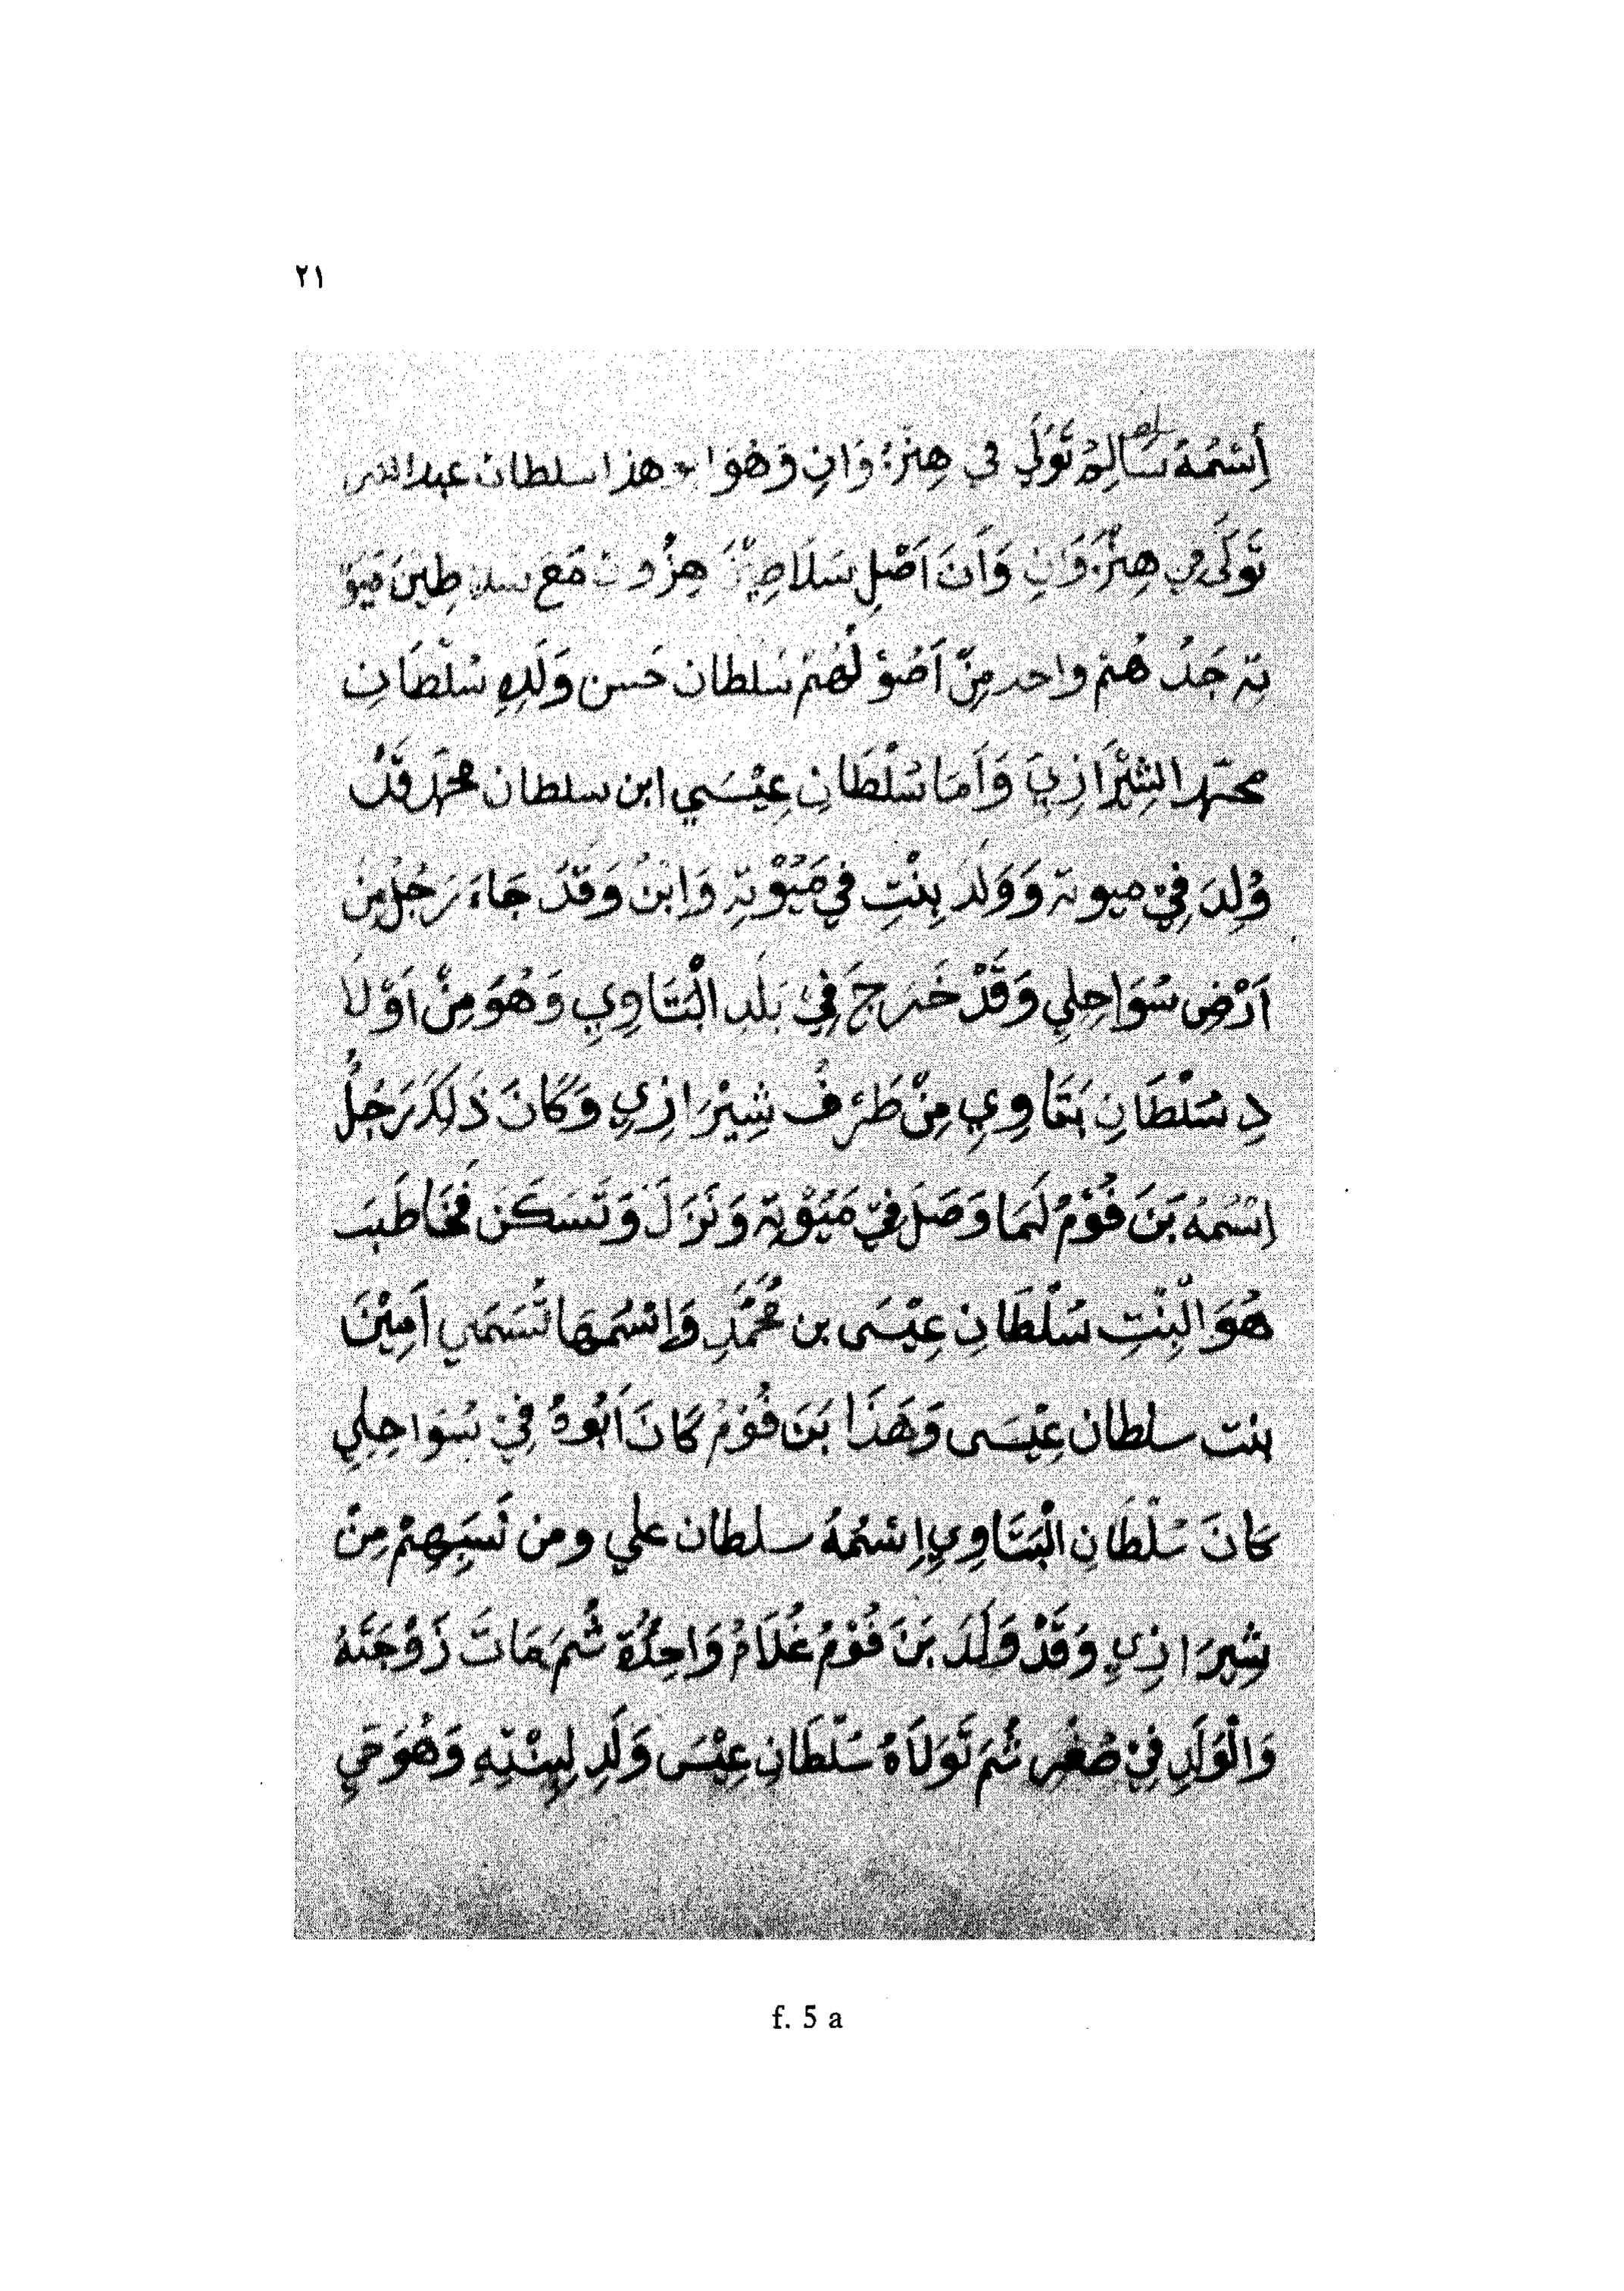 ٢١
إِسْمُهُ سَالِمْ تَوَلَّي في هِنْزُ؛ وَانِ وَهُوَ هذا سلطان عبد الله
تَوَلَّى فِي هِنْزُ؛ وَانِ وَاَنَ اَصْلِ سَلَاطِيْنَ هِنْزُوَنْ مَعَ سلاطِينَ مَيْوُ
تِهْ جَدُ هُمْ واحد مِنْ اَصُوْ لُهُمْ سُلطان حَسن وَلَدِهِ سُلْطَانِ
محمّد الشِيْرَازِيّ وَاَمَا سُلْطَانِ عِيْسَي ابن سلطان محمّد قَدْ
وُلِدَ فِيْ ميوتة وَوَلَدَ بِنْتِ فِي مَيُوْتِهِ وَاِبْنُ وَقَدْ جَاءَ رَجُلْ مِنْ
اَرْضِ سُوَاحِلِي وَقَدْ خَرَجَ فِيْ بَلَدِ الْبَتَاوِي وَهُوَ مِنْ اَوْلَا
دِ سُلْطَانِ بَتَاوِي مِنْ طَرَفْ شِيْرَازِي وَكَانَ ذَلِكَ رَجُلُ
اِسْمُهُ بَنَ فُوْمُ لَمَا وَصَلَ فِيْ مَيُوْتِهْ وَنَزَلَ وَتَسَكَنَ فَخَاطَبَ
هُوَ الْبِنْتِ سُلْطَانِ عِيْسَى بن مُحَمَّدِ وَاِسْمُهَا تُسَمَي اَمِيْنَ
بنت سلطان عِيْسَى وَهَذَا بَنَ فُوْمُ كَانَ اَبُوهُ فِيْ سُوَاحِلِي
كَانَ سُلْطَانِ الْبَتَاوِي اِسْمُهُ سلطان علي ومن نَسَبِهِمْ مِنْ
شِيرَازِي وَقَدْ وَلَدَ بَنَ فُوْمُ غُلَامُ وَاحِدُةْ ثُمَ مَاتَ زَوْجَتَهُ
وَالْوَلَدِ فِيْ صُغْرِ ثُمَ تَوَلَاهُ سُلْطَانِ عِيْسَى وَلَدِ لِبِنْتِهِ وَهُوَ حَيِ
f. 5 a